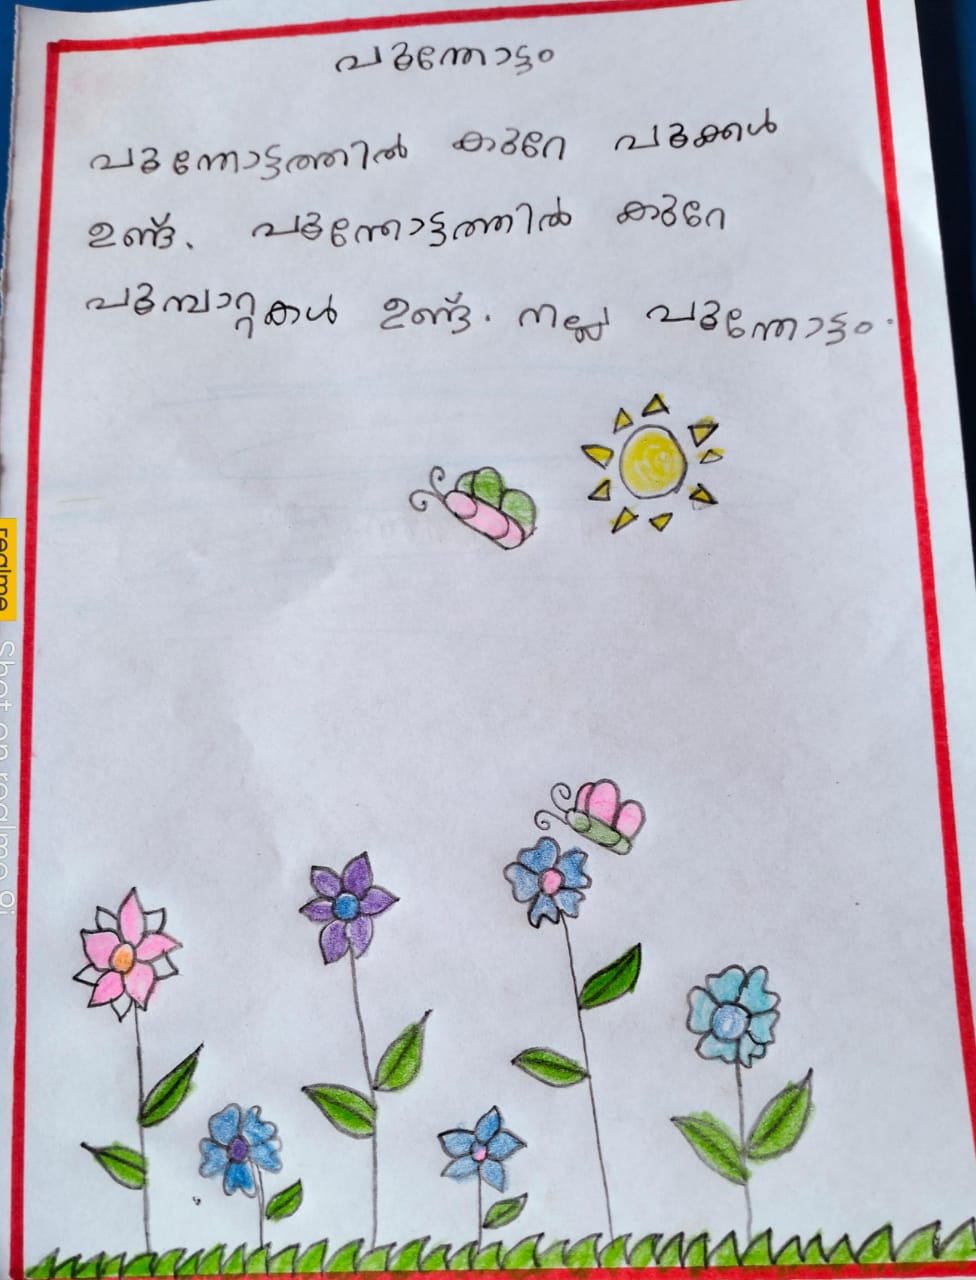 പൂന്തോട്ടം
പൂന്തോട്ടത്തിൽ കുറേ പൂക്കൾ
ഉണ്ട്. പൂന്തോട്ടത്തിൽ കുറേ
പൂമ്പാറ്റകൾ ഉണ്ട്. നല്ല പൂന്തോട്ടം.
realme Shot on realme 9i